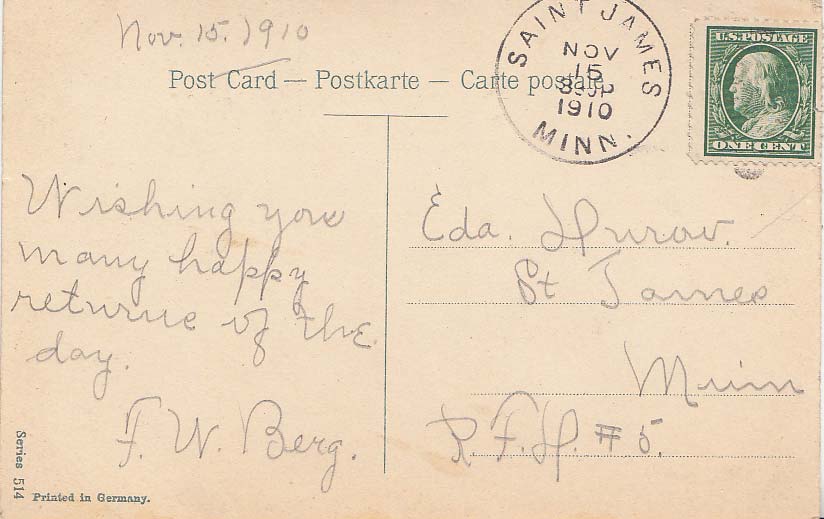 Nov. 15. 1910
Post Card — Postkarte — Carte postale
SAINT JAMES
NOV
15
1910
MINN.
U.S. POSTAGE
ONE CENT
Wishing you
many happy
returns of the
day.
F. W. Berg.
Eda.
St James
Minn
R. F. D. # 5.
Series 514
Printed in Germany.